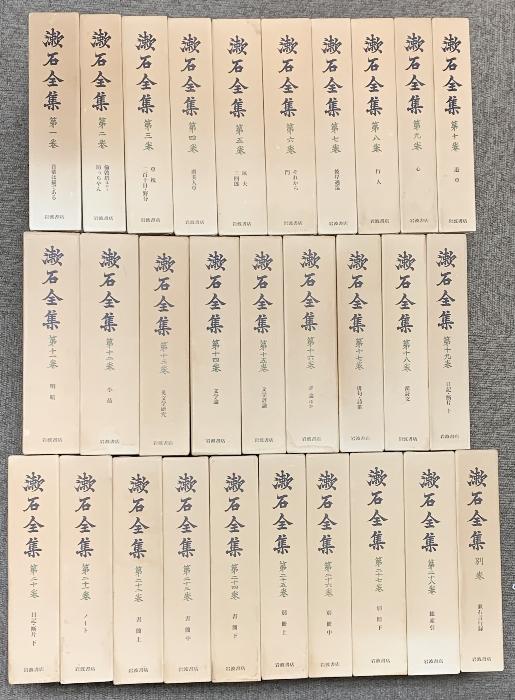 漱石全集
第一巻
吾輩は猫である
岩波書店
漱石全集
第二巻
倫敦塔ほか
坊っちゃん
岩波書店
漱石全集
第三巻
草枕
二百十日・野分
岩波書店
漱石全集
第四巻
虞美人草
岩波書店
漱石全集
第五巻
坑夫
三四郎
岩波書店
漱石全集
第六巻
それから
門
岩波書店
漱石全集
第七巻
彼岸過迄
岩波書店
漱石全集
第八巻
行人
岩波書店
漱石全集
第九巻
心
岩波書店
漱石全集
第十巻
道草
岩波書店
漱石全集
第十一巻
明暗
岩波書店
漱石全集
第十二巻
小品
岩波書店
漱石全集
第十三巻
英文学研究
岩波書店
漱石全集
第十四巻
文学論
岩波書店
漱石全集
第十五巻
文学評論
岩波書店
漱石全集
第十六巻
評論ほか
岩波書店
漱石全集
第十七巻
俳句・詩歌
岩波書店
漱石全集
第十八巻
漢詩文
岩波書店
漱石全集
第十九巻
日記・断片 上
岩波書店
漱石全集
第二十巻
日記・断片 下
岩波書店
漱石全集
第二十一巻
ノート
岩波書店
漱石全集
第二十二巻
書簡 上
岩波書店
漱石全集
第二十三巻
書簡 中
岩波書店
漱石全集
第二十四巻
書簡 下
岩波書店
漱石全集
第二十五巻
別冊 上
岩波書店
漱石全集
第二十六巻
別冊 中
岩波書店
漱石全集
第二十七巻
別冊 下
岩波書店
漱石全集
第二十八巻
総索引
岩波書店
漱石全集
別巻
漱石言行録
岩波書店